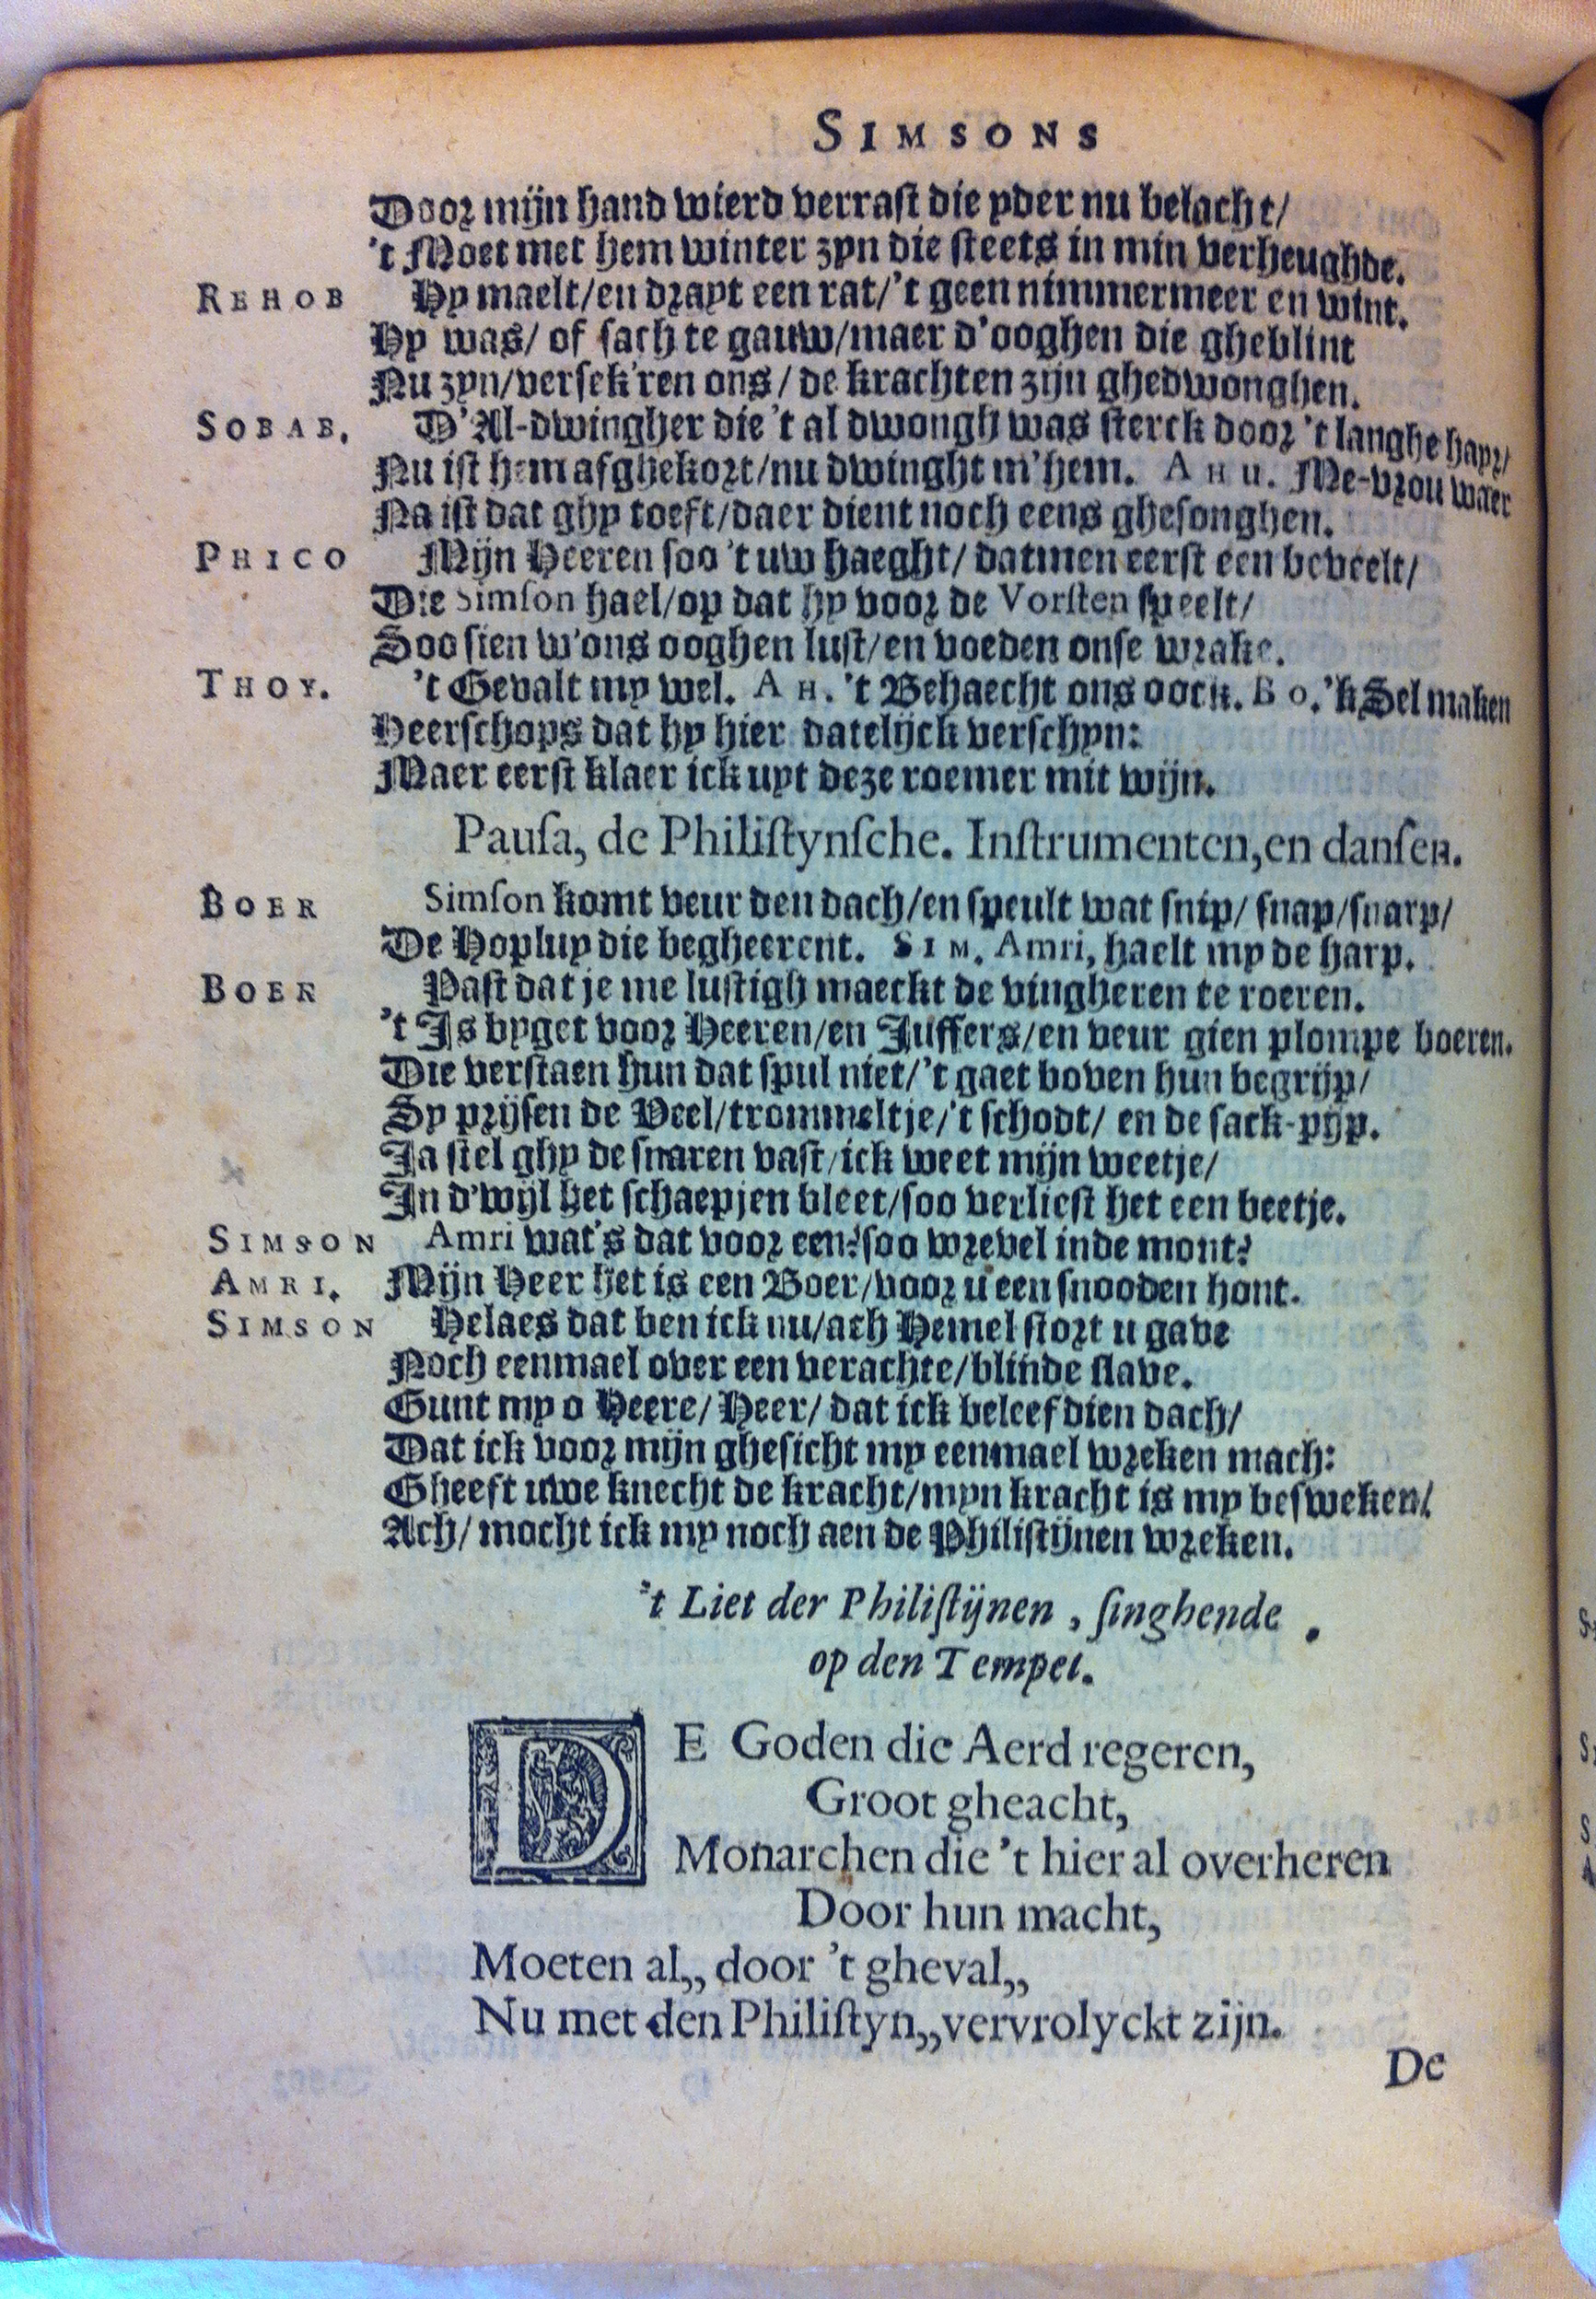 SIMSONS
Door mijn hand wierd verrast die yder nu belacht/
't Moet met hem winter zyn die steets in min verheughde.
REHOB Hy maelt/en drayt een rat/'t geen nimmermeer en wint.
Hy was/ of sach te gauw/maer d'ooghen die gheblint
Nu zyn/versek'ren ons/ de krachten zijn ghedwonghen.
SOBAB. D'Al-dwingher die 't al dwongh was sterck door 't langhe hayr/
Nu ist hem afghekort/nu dwinght m'hem. AHU. Me-vrou waer
Na ist dat ghy toeft/daer dient noch eens ghesonghen.
PHICO Mijn Heeren soo 't uw haeght/ datmen eerst een beveelt/
Die Simson hael/op dat hy voor de Vorsten speelt/
Soo sien w'ons ooghen lust/en voeden onse wrake.
THOY. 't Gevalt my wel. AH. 't Behaecht ons oock. BO. 'k Sel maken
Heerschops dat hy hier datelijck verschyn:
Maer eerst klaer ick uyt deze roemer mit wijn.
Pausa, de Philistynsche. Instrumenten, en dansen.
BOER Simson komt veur den dach/en speult wat snip/ snap/snarp/
De Hopluy die begheerent. SIM. Amri, haelt my de harp.
BOER Past dat je me lustigh maeckt de vingheren te roeren.
't Is byget voor Heeren/en Juffers/en veur gien plompe boeren.
Die verstaen hun dat spul niet/'t gaet boven hun begrijp/
Sy prijsen de Veel/trommeltje/'t schodt/ en de sack-pijp.
Ja stel ghy de snaren vast/ick weet mijn weetje/
In d'wijl het schaepjen bleet/soo verliest het een beetje.
SIMSON Amri wat's dat voor een?soo wrevel inde mont?
AMRI. Mijn Heer het is een Boer/voor u een snooden hont.
SIMSON Helaes dat ben ick nu/ach Hemel stort u gave
Noch eenmael over een verachte/blinde slave.
Gunt my o Heere/ Heer/ dat ick beleef dien dach/
Dat ick voor mijn ghesicht my eenmael wreken mach:
Gheeft uwe knecht de kracht/myn kracht is my besweken/
Ach/ mocht ick my noch aen de Philistijnen wreken.
't Liet der Philistijnen, singhende
op den Tempel.
DE Goden die Aerd regeren,
Groot gheacht,
Monarchen die 't hier al overheren
Door hun macht,
Moeten al,, door 't gheval,,
Nu met den Philistyn,,vervrolyckt zijn.
De